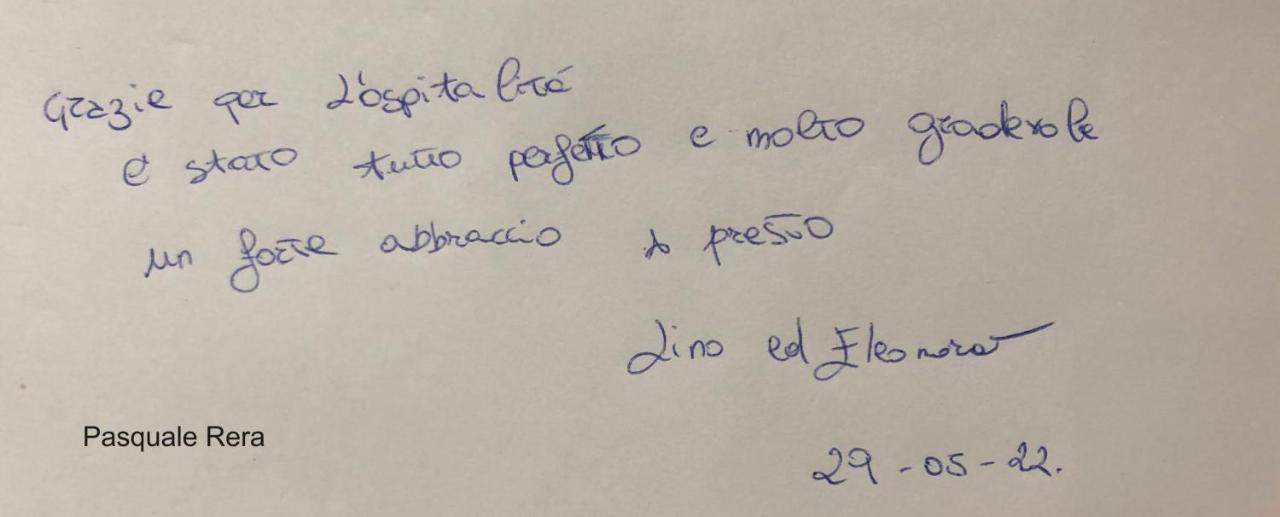 Grazie per L'ospitalitá
é stato tutto perfetto e molto gradevole
un forte abbraccio A presto
Lino ed Eleonora
Pasquale Rera
29-05-22.